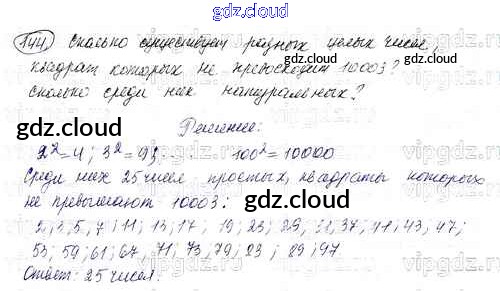 gdz.cloud
144. Сколько существует разных целых чисел,
квадрат которых не превосходит 10003?
Сколько среди них натуральных?
gdz.cloud
Решение:
2²=4; 3²=9; ... 100²=10000
Среди них 25 чисел простых, квадраты которых
не превышают 10003:
2; 3; 5; 7; 11; 13; 17; 19; 23; 29; 31; 37; 41; 43; 47;
53; 59; 61; 67; 71; 73; 79; 83; 89; 97
Ответ: 25 чисел.
gdz.cloud
gdz.cloud
gdz.cloud